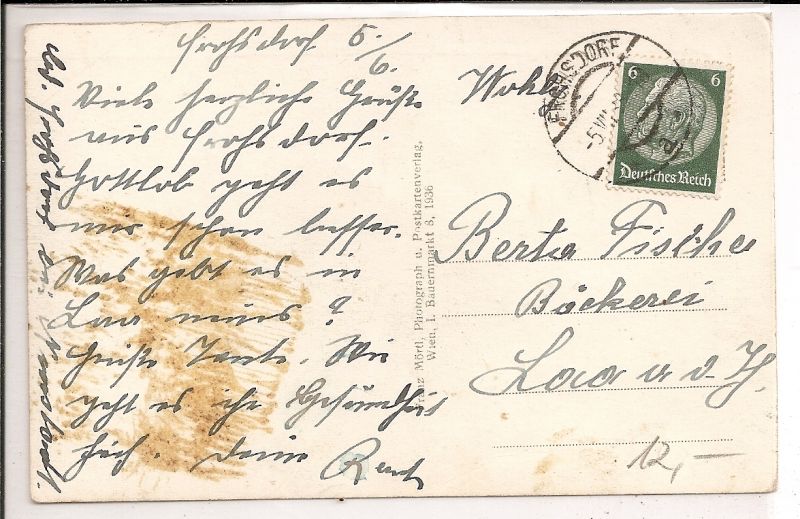 Frohsdorf 5/6.
Viele herzliche Grüße
aus Frohsdorf.
Gottlob geht es
mir schon besser.
Was gibt es in
Laa neues?
Grüße Tante. Wie
geht es ihr Gesundheit
lich. Deine
Frohsdorf
Franz Mörtl, Photograph u. Postkartenverlag,
Wien, I. Bauernmarkt 3, 1936
FROHSDORF
6 6
Deutsches Reich
Wohl
Berta Fische
Bäckerei
Laa a d Th.
12,—